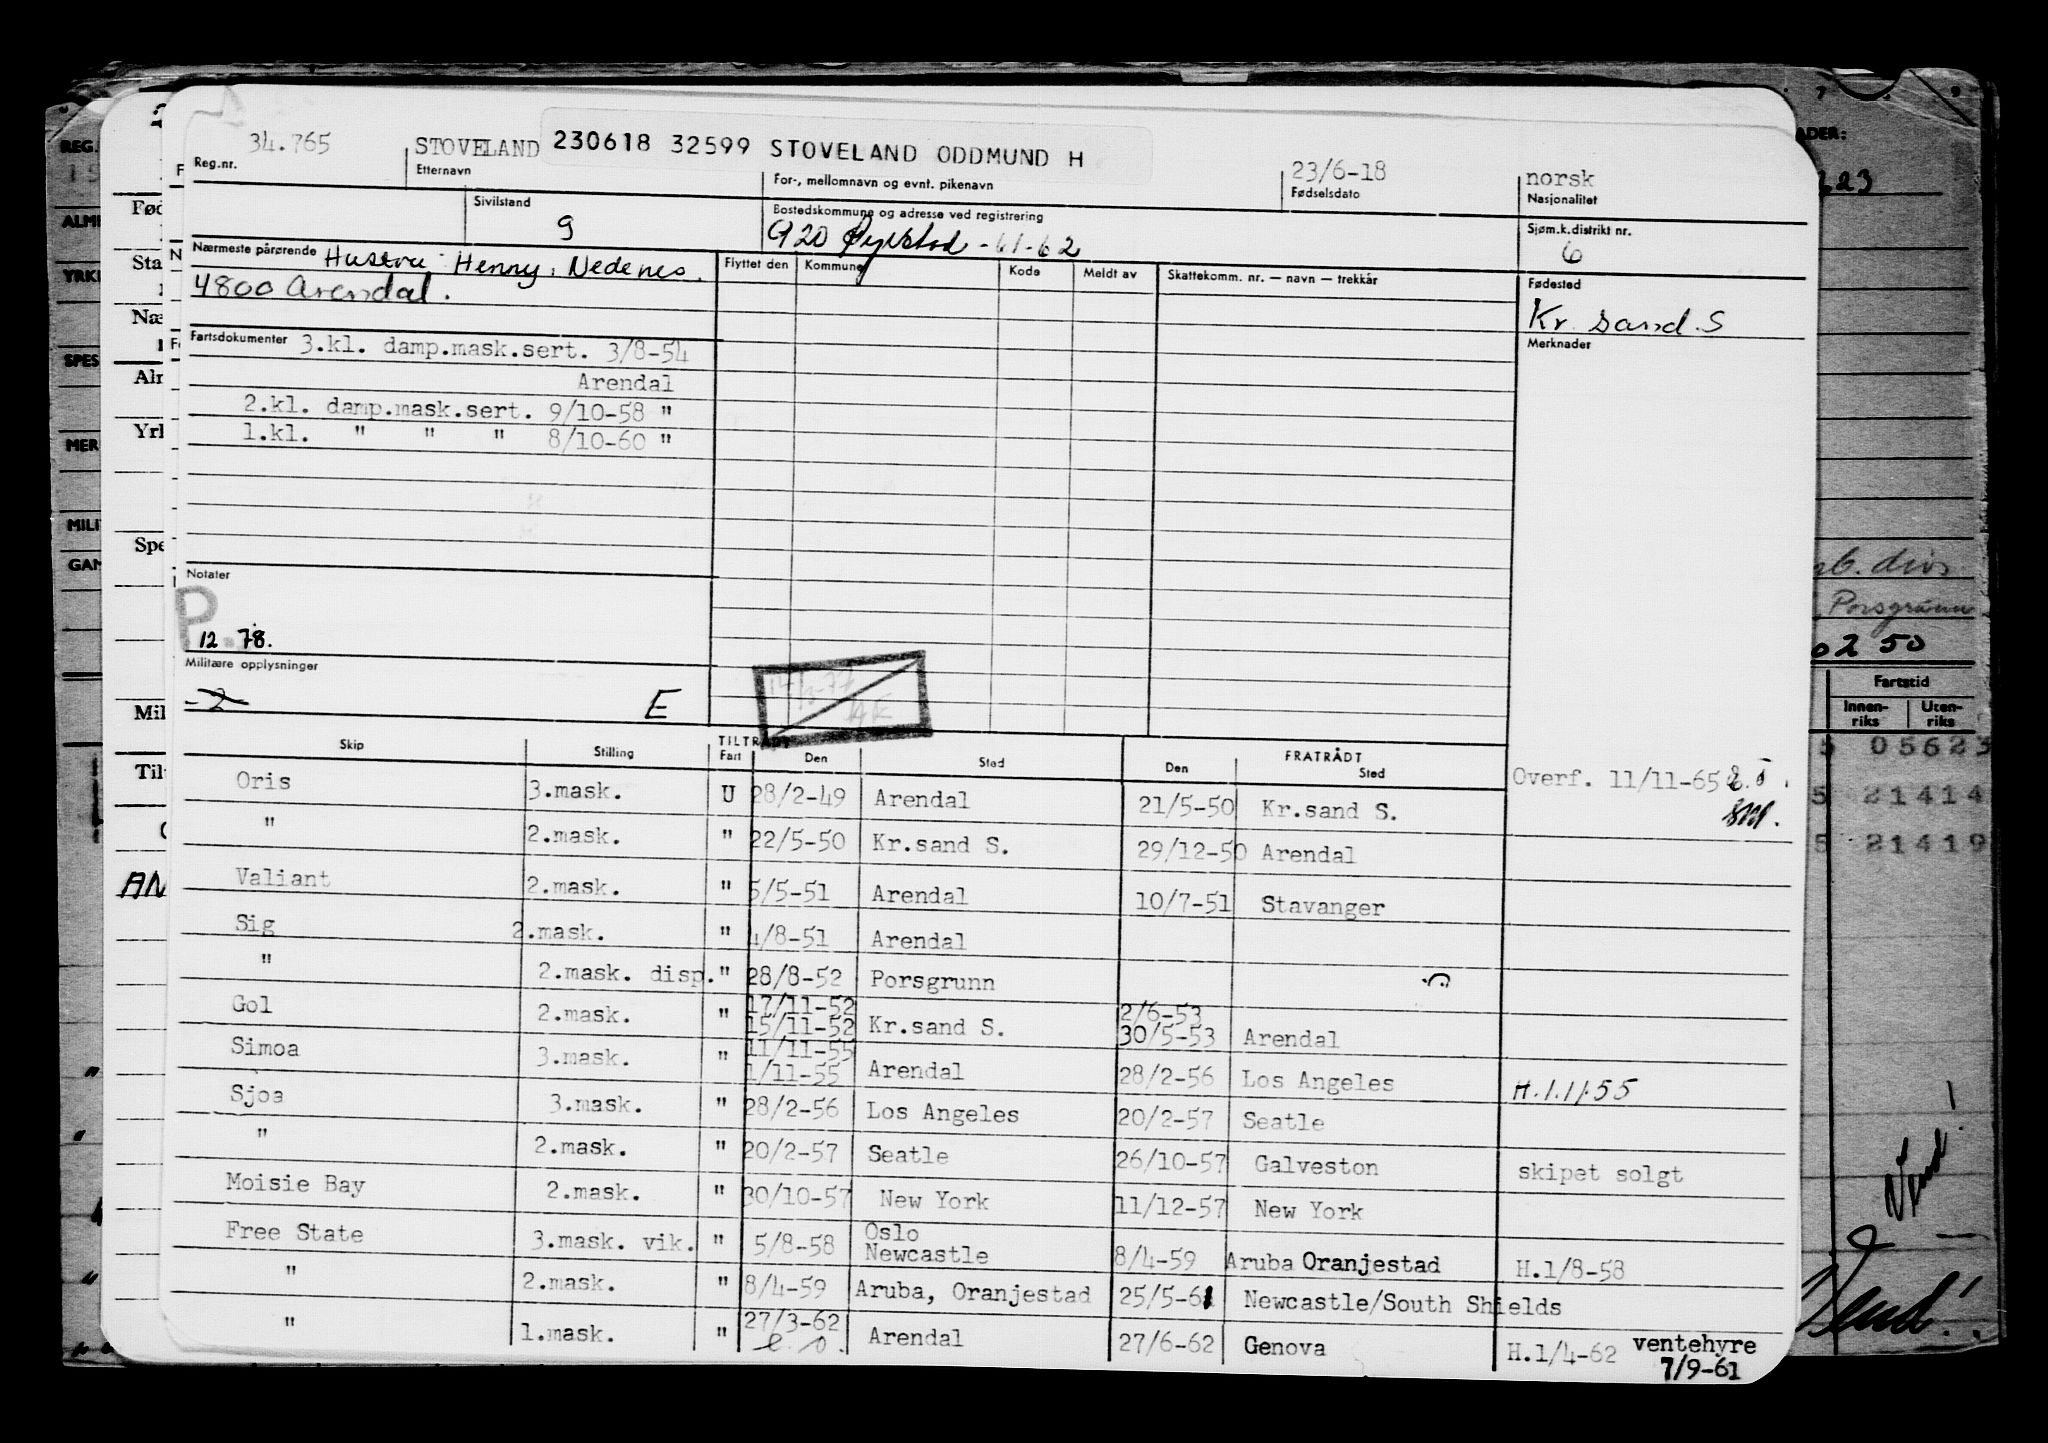 34.765 STOVELAND 230618 32599 STOVELAND ODDMUND H 23/6-18 norsk
Reg.nr. Etternavn For-, mellomnavn og evnt. pikenavn Fødselsdato Nasjonalitet
Sivilstand Bostedskommune og adresse ved registrering Sjøm.k.distrikt nr.
g 920 Øyestad -61-62 6
Nærmeste pårørende Hustru Henny, Nedenes. Flyttet den Kommune Kode Meldt av Skattekomm. nr. — navn — trekkår Fødested
4800 Arendal. Kr. sand. S
Fartsdokumenter 3.kl. damp.mask.sert. 3/8-54 Merknader
Arendal
2.kl. damp.mask.sert. 9/10-58 "
1.kl. " " " 8/10-60 "
Notater
P.
12 78.
Militære opplysninger
-2 E
Skip Stilling TILTRÅDT FRATRÅDT
Fart Den Sted Den Sted
Overf. 11/11-65
Oris 3.mask. U 28/2-49 Arendal 21/5-50 Kr.sand S.
" 2.mask. " 22/5-50 Kr.sand S. 29/12-50 Arendal
Valiant 2.mask. " 5/5-51 Arendal 10/7-51 Stavanger
Sig 2.mask. " 4/8-51 Arendal
" 2.mask. disp. " 28/8-52 Porsgrunn
Gol 2.mask. " 17/11-52 2/6-53
15/11-52 Kr.sand S. 30/5-53 Arendal
Simoa 3.mask. " 11/11-55
1/11-55 Arendal 28/2-56 Los Angeles H.1.11.55
Sjoa 3.mask. " 28/2-56 Los Angeles 20/2-57 Seatle
" 2.mask. " 20/2-57 Seatle 26/10-57 Galveston skipet solgt
Moisie Bay 2.mask. " 30/10-57 New York 11/12-57 New York
Free State 3.mask. vik. " 5/8-58 Oslo
Newcastle 8/4-59 Aruba Oranjestad H.1/8-58
" 2.mask. " 8/4-59 Aruba, Oranjestad 25/5-61 Newcastle/South Shields
" 1.mask. " 27/3-62 Arendal 27/6-62 Genova H.1/4-62 ventehyre
7/9-61
REG.
ALM
YRK
SPES
MER
MILI
GAN
Fød
Sta
Næ
Alr
Yrk
Spe
Mil
Til
AN
ADER:
223
Porsgrunn
0250
Fartstid
Innen-riks Uten-riks
5 05623
5 21414
5 21419